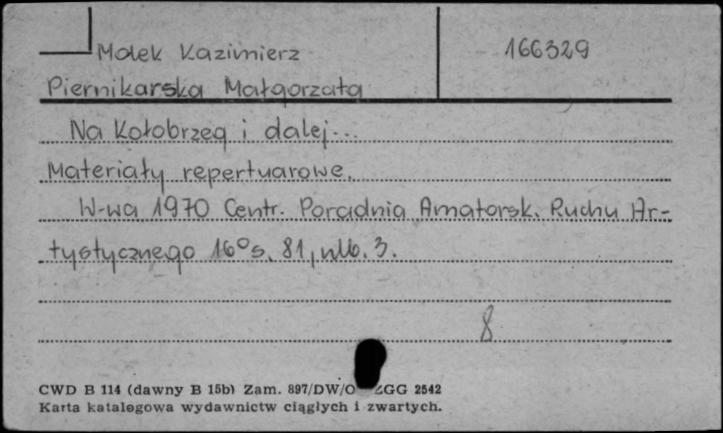 Molek Kazimierz 166329
Piernikarska Małgorzata
Na Kołobrzeg i dalej...
Materiały repertuarowe.
W-wa 1970 Centr. Poradnia Amatorsk. Ruchu Ar-
tystycznego 16° s. 81, nlb. 3.
8
CWD B 114 (dawny B 15b) Zam. 897/DW/O ZGG 2542
Karta katalogowa wydawnictw ciągłych i zwartych.